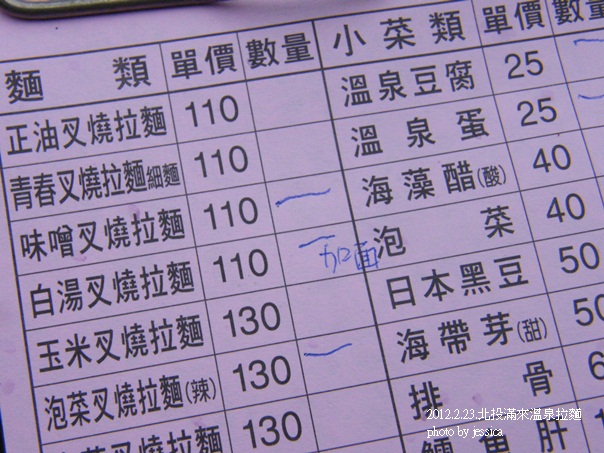 麵 類 單價 數量 小菜類 單價 數量
正油叉燒拉麵 110 溫泉豆腐 25
青春叉燒拉麵細麵 110 溫泉蛋 25
味噌叉燒拉麵 110 海藻醋(酸) 40
白湯叉燒拉麵 110 加面 泡菜 40
玉米叉燒拉麵 130 日本黑豆 50
泡菜叉燒拉麵(辣) 130 海帶芽(甜) 50
叉燒拉麵 130 排骨
魚肝
2012.2.23.北投滿來溫泉拉麵
photo by jessica